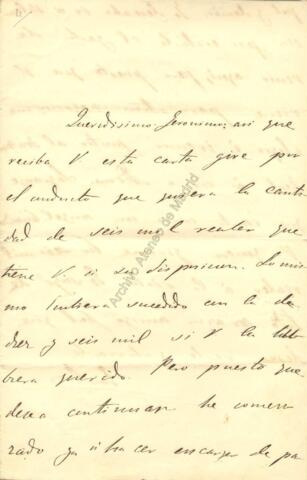 Queridisimo Jeronimo: asi que
reciba V esta carta gire por
el conducto que quiera la canti
dad de seis mil reales que
tiene V. a su disposicion. Lo mis
mo hubiera sucedido con la de
diez y seis mil si V la hu
biera querido. Pero puesto que
desea continuar he comen
zado ya a hacer encargo de pa
Archivo Ateneo de Madrid